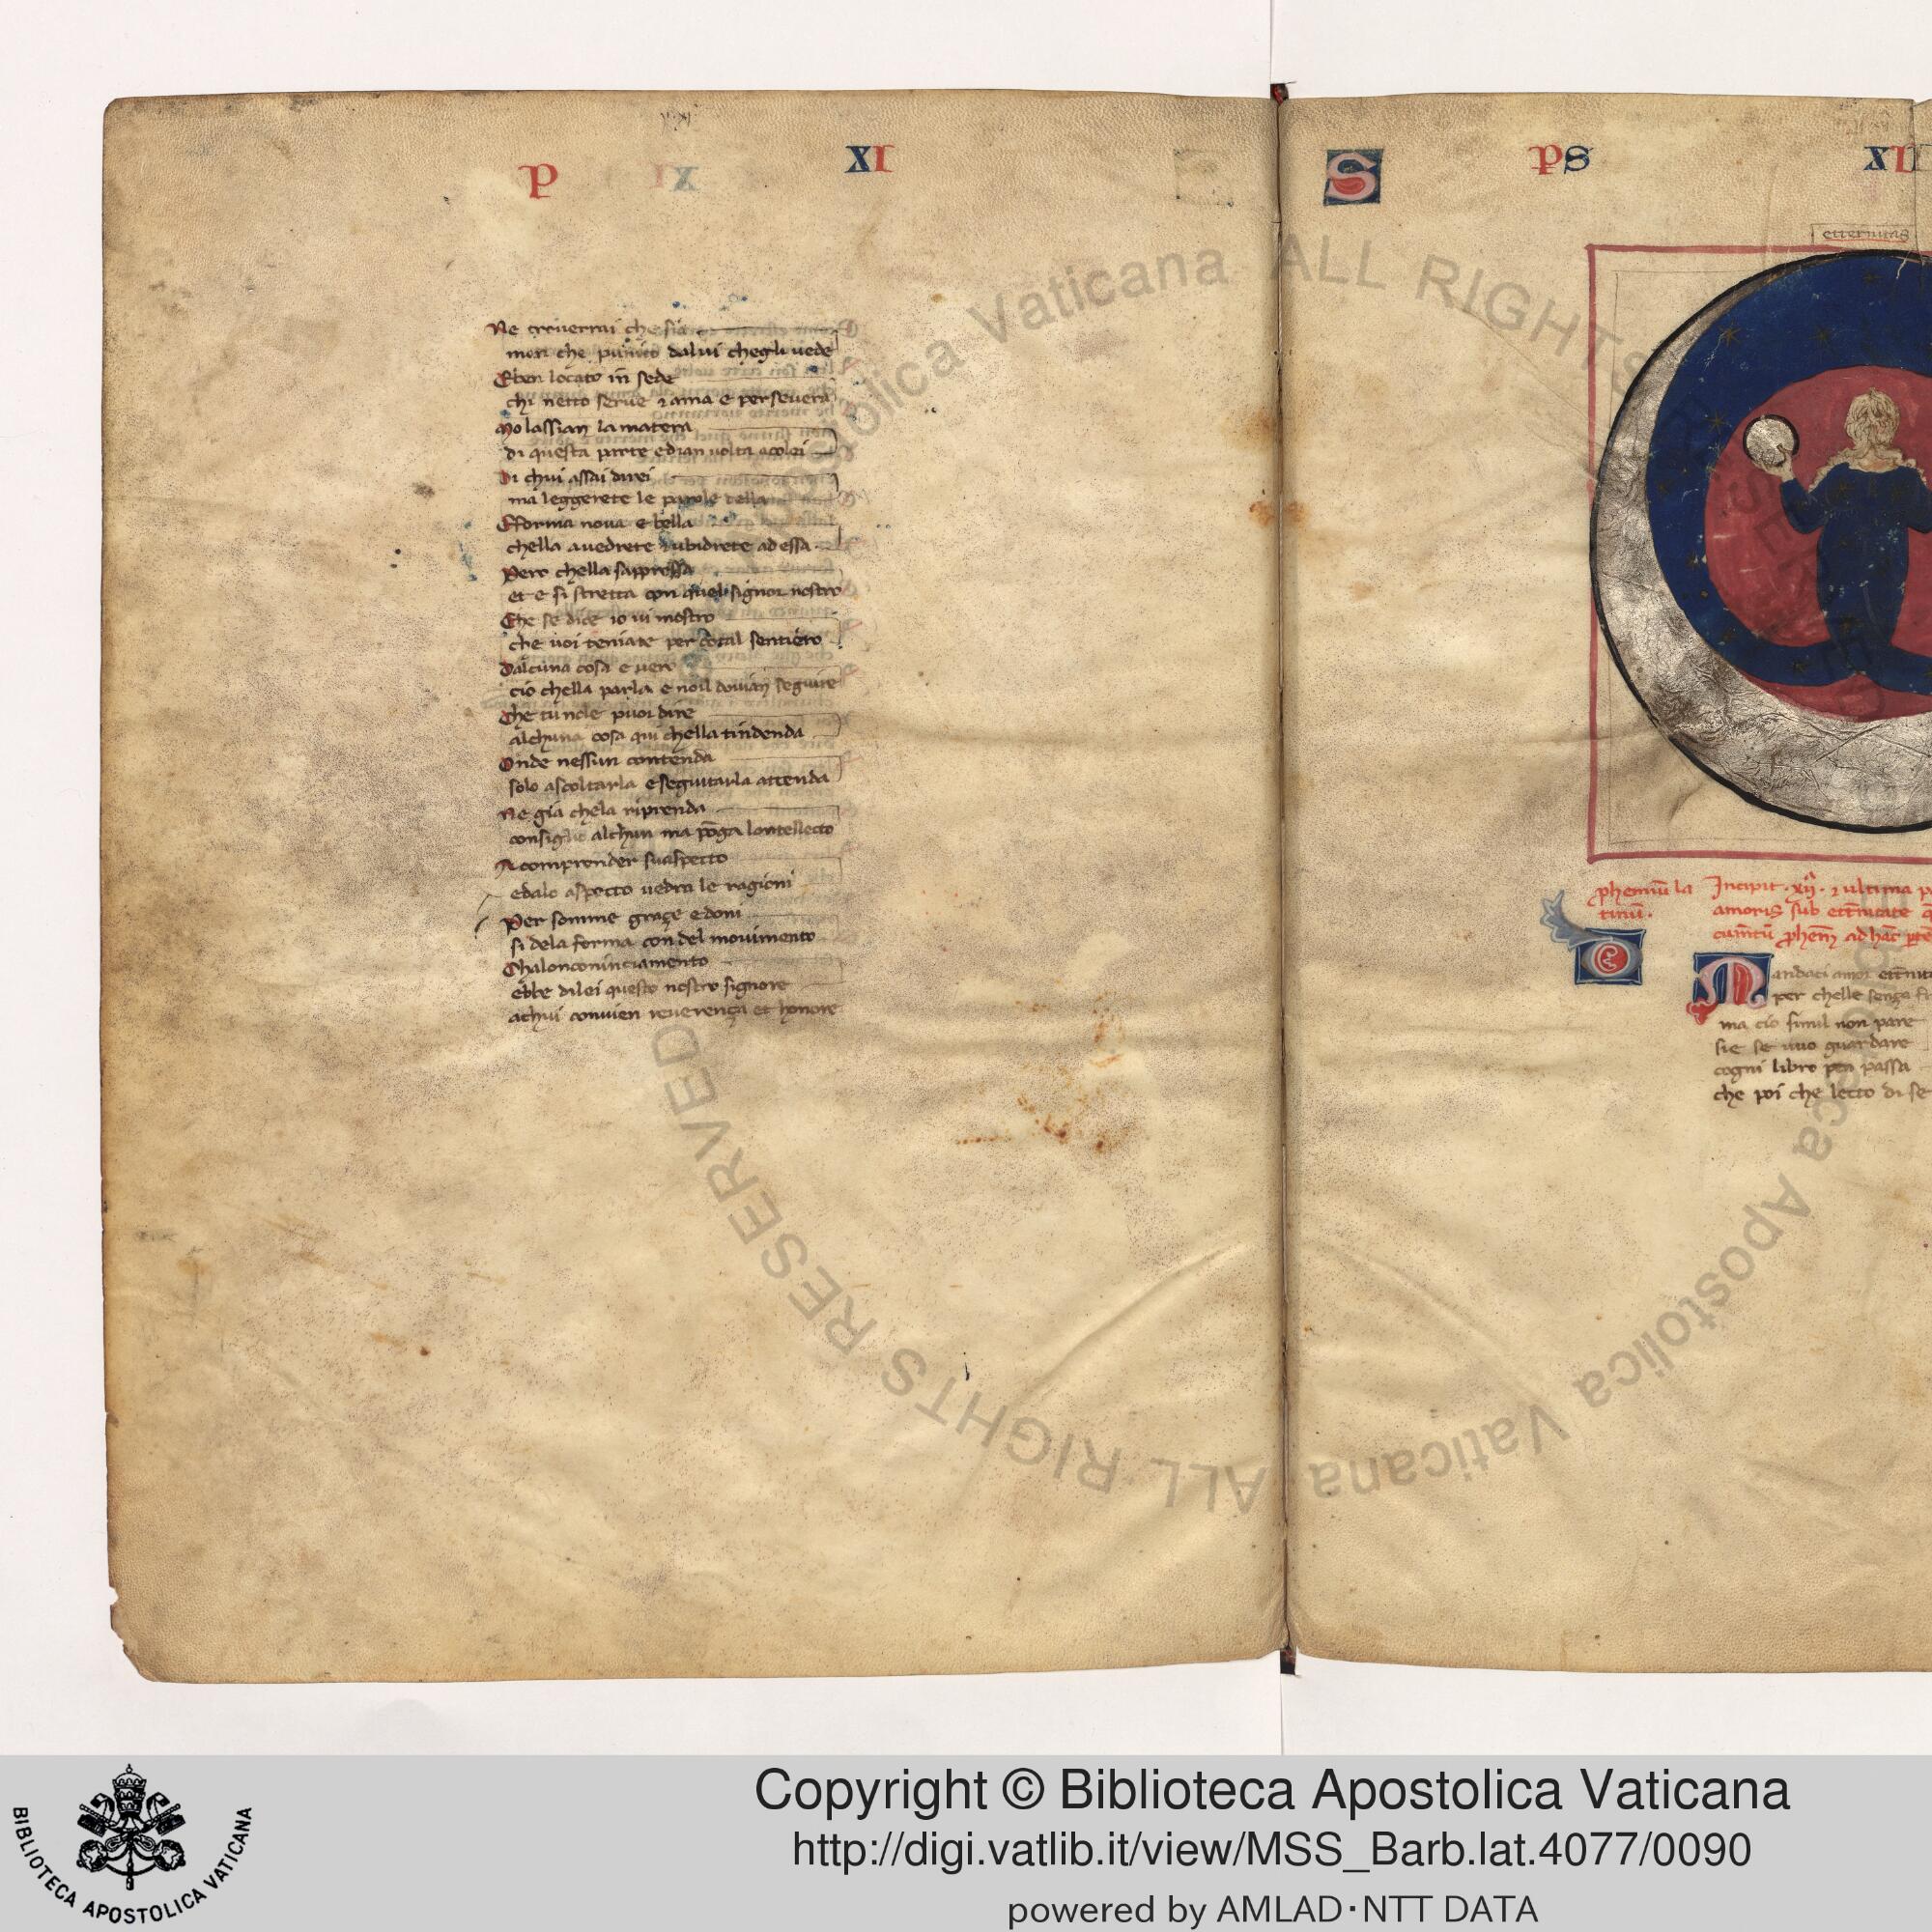 P XI
Ne troverrai che sia
men che punito dalui chegli vede
Eben locato in sede
chi netto serve ⁊ ama e persevera
Mo lassian la matera
di questa parte edian volta acolei
Di chui assai direi
ma leggerete le parole della
Eforma nova e bella
chella avedrete ubidrete ad essa
Pero chella sappressa
et e si stretta con quel signor nostro
Che se dice io vi mostro
che voi teniate per cotal sentiero
Dalcuna cosa e vero
cio chella parla e noil dovian seguire
Che tu nole puoi dire
alchuna cosa qui chella tindenda
Onde nessun contenda
solo ascoltarla e seguitarla attenda
Ne gia chela riprenda
consiglio alchun ma ponga lontellecto
A comprender suaspecto
edalo aspecto vedra le ragioni
Per somme graçe e doni
si dela forma con del movimento
Chalonconinciamento
ebbe dilei questo nostro signore
achui convien reverença et honore
S PS XII
etternitas
phemiũ la
tinũ.
Incipit .xij. ⁊ ultima
amoris sub etẽnitate
phemĩ ad hãc
E
Mandaci amor
per chelle sença
ma cio simil non pare
sie se vuo guardare
cogni libro pon passa
che poi che lecto di se
Biblioteca Apostolica Vaticana ALL RIGHTS RESERVED
BIBLIOTECA APOSTOLICA VATICANA
Copyright © Biblioteca Apostolica Vaticana
http://digi.vatlib.it/view/MSS_Barb.lat.4077/0090
powered by AMLAD·NTT DATA